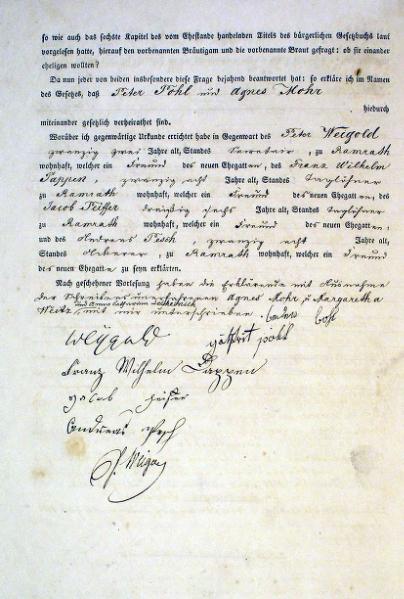 so wie auch das sechste Kapitel des vom Ehestande handelnden Titels des bürgerlichen Gesetzbuchs laut
vorgelesen hatte, hierauf den vorbenannten Bräutigam und die vorbenannte Braut gefragt: ob sie einander
ehelichen wollten?
Da nun jeder von beiden insbesondere diese Frage bejahend beantwortet hat: so erkläre ich im Namen
des Gesetzes, daß Peter Pöhl und Agnes Mohr
hiedurch
miteinander gesetzlich verheirathet sind.
Worüber ich gegenwärtige Urkunde errichtet habe in Gegenwart des Peter Weigold
zwanzig zwei Jahre alt, Standes Secretair, zu Ramrath
wohnhaft, welcher ein Freund des neuen Ehegatten, des Franz Wilhelm
Pappen, zwanzig acht Jahre alt, Standes Taglöhner
zu Ramrath wohnhaft, welcher ein Freund des neuen Ehegatten, des
Jacob dreißig sechs Jahre alt, Standes Taglöhner
zu Ramrath wohnhaft, welcher ein Freund des neuen Ehegatten,
und des Andreas Pesch, zwanzig acht Jahre alt,
Standes Ackerer, zu Ramrath wohnhaft, welcher ein Freund
des neuen Ehegatten zu seyn erklärten.
Nach geschehener Vorlesung haben die Erklärende mit Ausnahme
der Schreibens unerfahrenen Agnes Mohr, Margaretha
mit mir unterschrieben.
Weygold
Franz Wilhelm Pappen
Jacob
Andreas Pesch